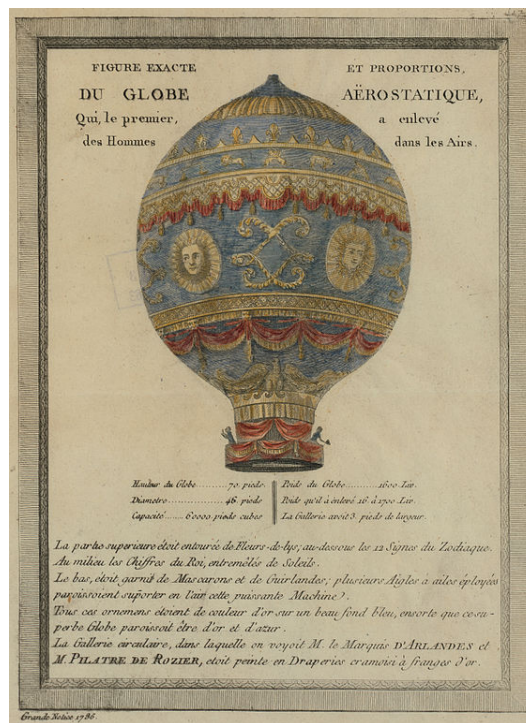 FIGURE EXACTE ET PROPORTIONS,
DU GLOBE AËROSTATIQUE,
Qui, le premier, a enlevé
des Hommes dans les Airs.
Hauteur du Globe..........70 pieds.
Diametre.............46 pieds
Capacité......60000 pieds cubes
Poids du Globe..........1600 Liv.
Poids qu'il à enlevé 16 à 1700 Liv.
La Gallerie avoit 3. pieds de largeur.
La partie superieure étoit entourée de Fleurs-de-lys, au-dessous les 12 Signes du Zodiaque.
Au milieu les Chiffres du Roi, entremêlés de Soleils.
Le bas, étoit garni de Mascarons et de Guirlandes; plusieurs Aigles à ailes éployées
paroissoient suporter en l'air cette puissante Machine.
Tous ces ornemens etoient de couleur d'or sur un beau fond bleu, ensorte que ce su-
perbe Globe paroissoit être d'or et d'azur.
La Gallerie circulaire, dans laquelle on voyoit M. le Marquis D'ARLANDES et
M. PILATRE DE ROZIER, etoit peinte en Draperies cramoisi à franges d'or.
Grande Notice 1786.